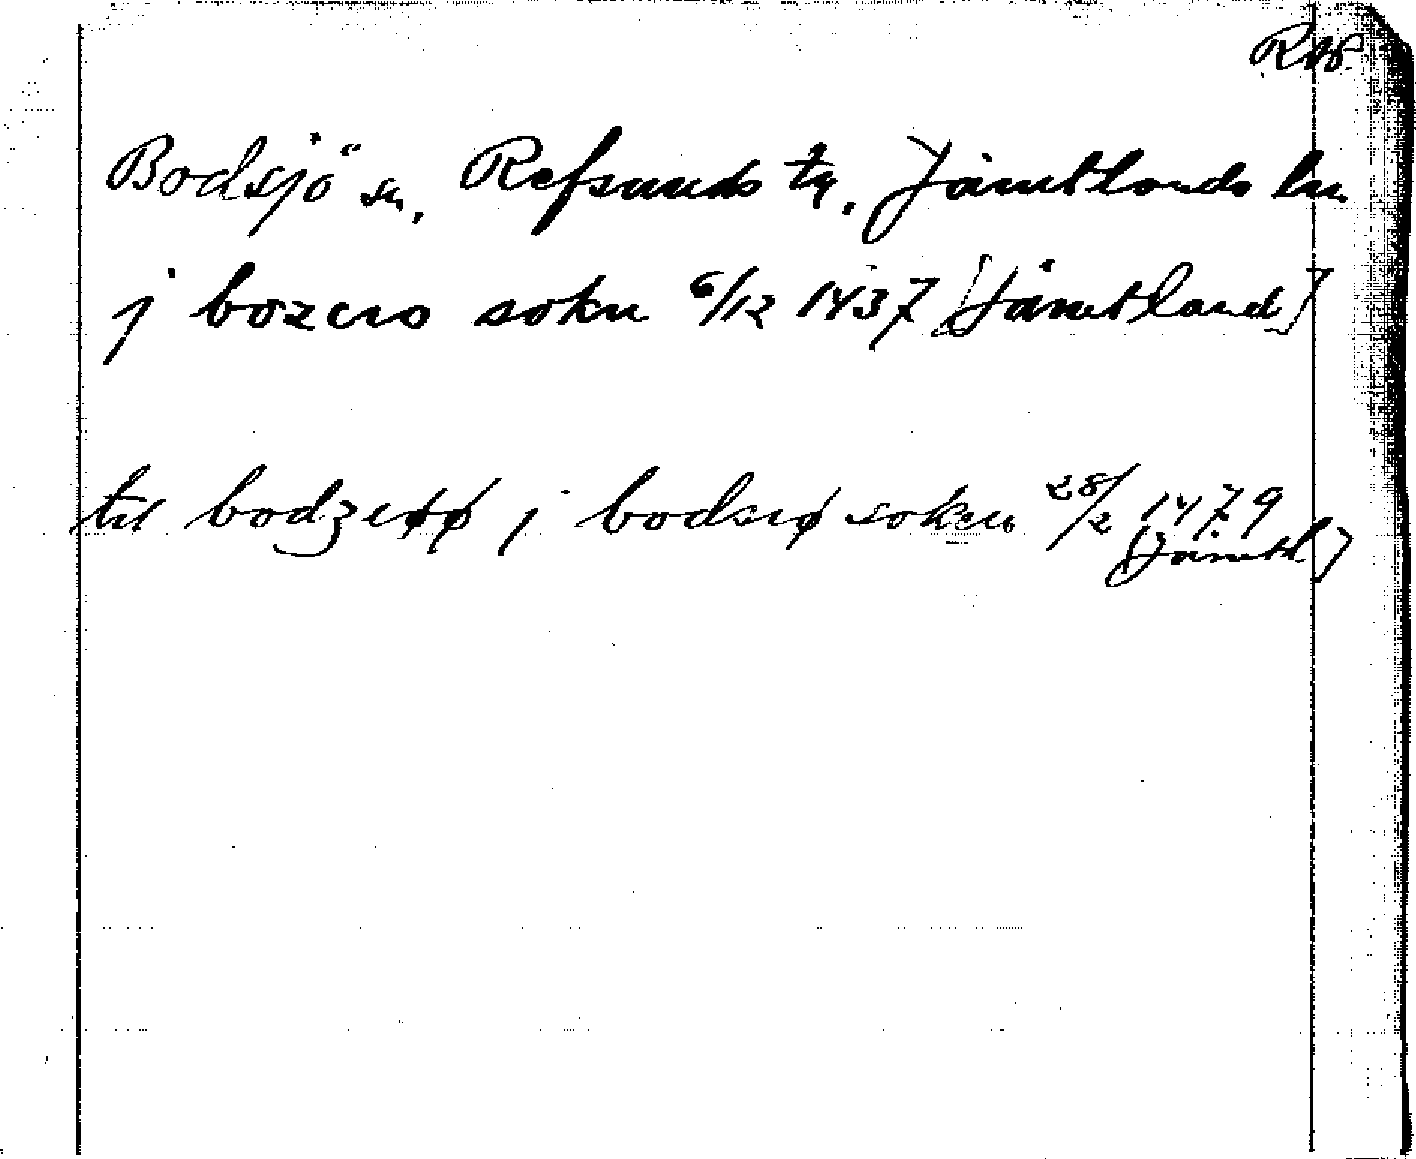 Bodsjö sn, Refsunds tg. Jämtlands län
j bozcio sokn 6/12 1437 [Jämtland]
til bodzeøø j bodsiø soken 28/2 1479
[Jämtl]